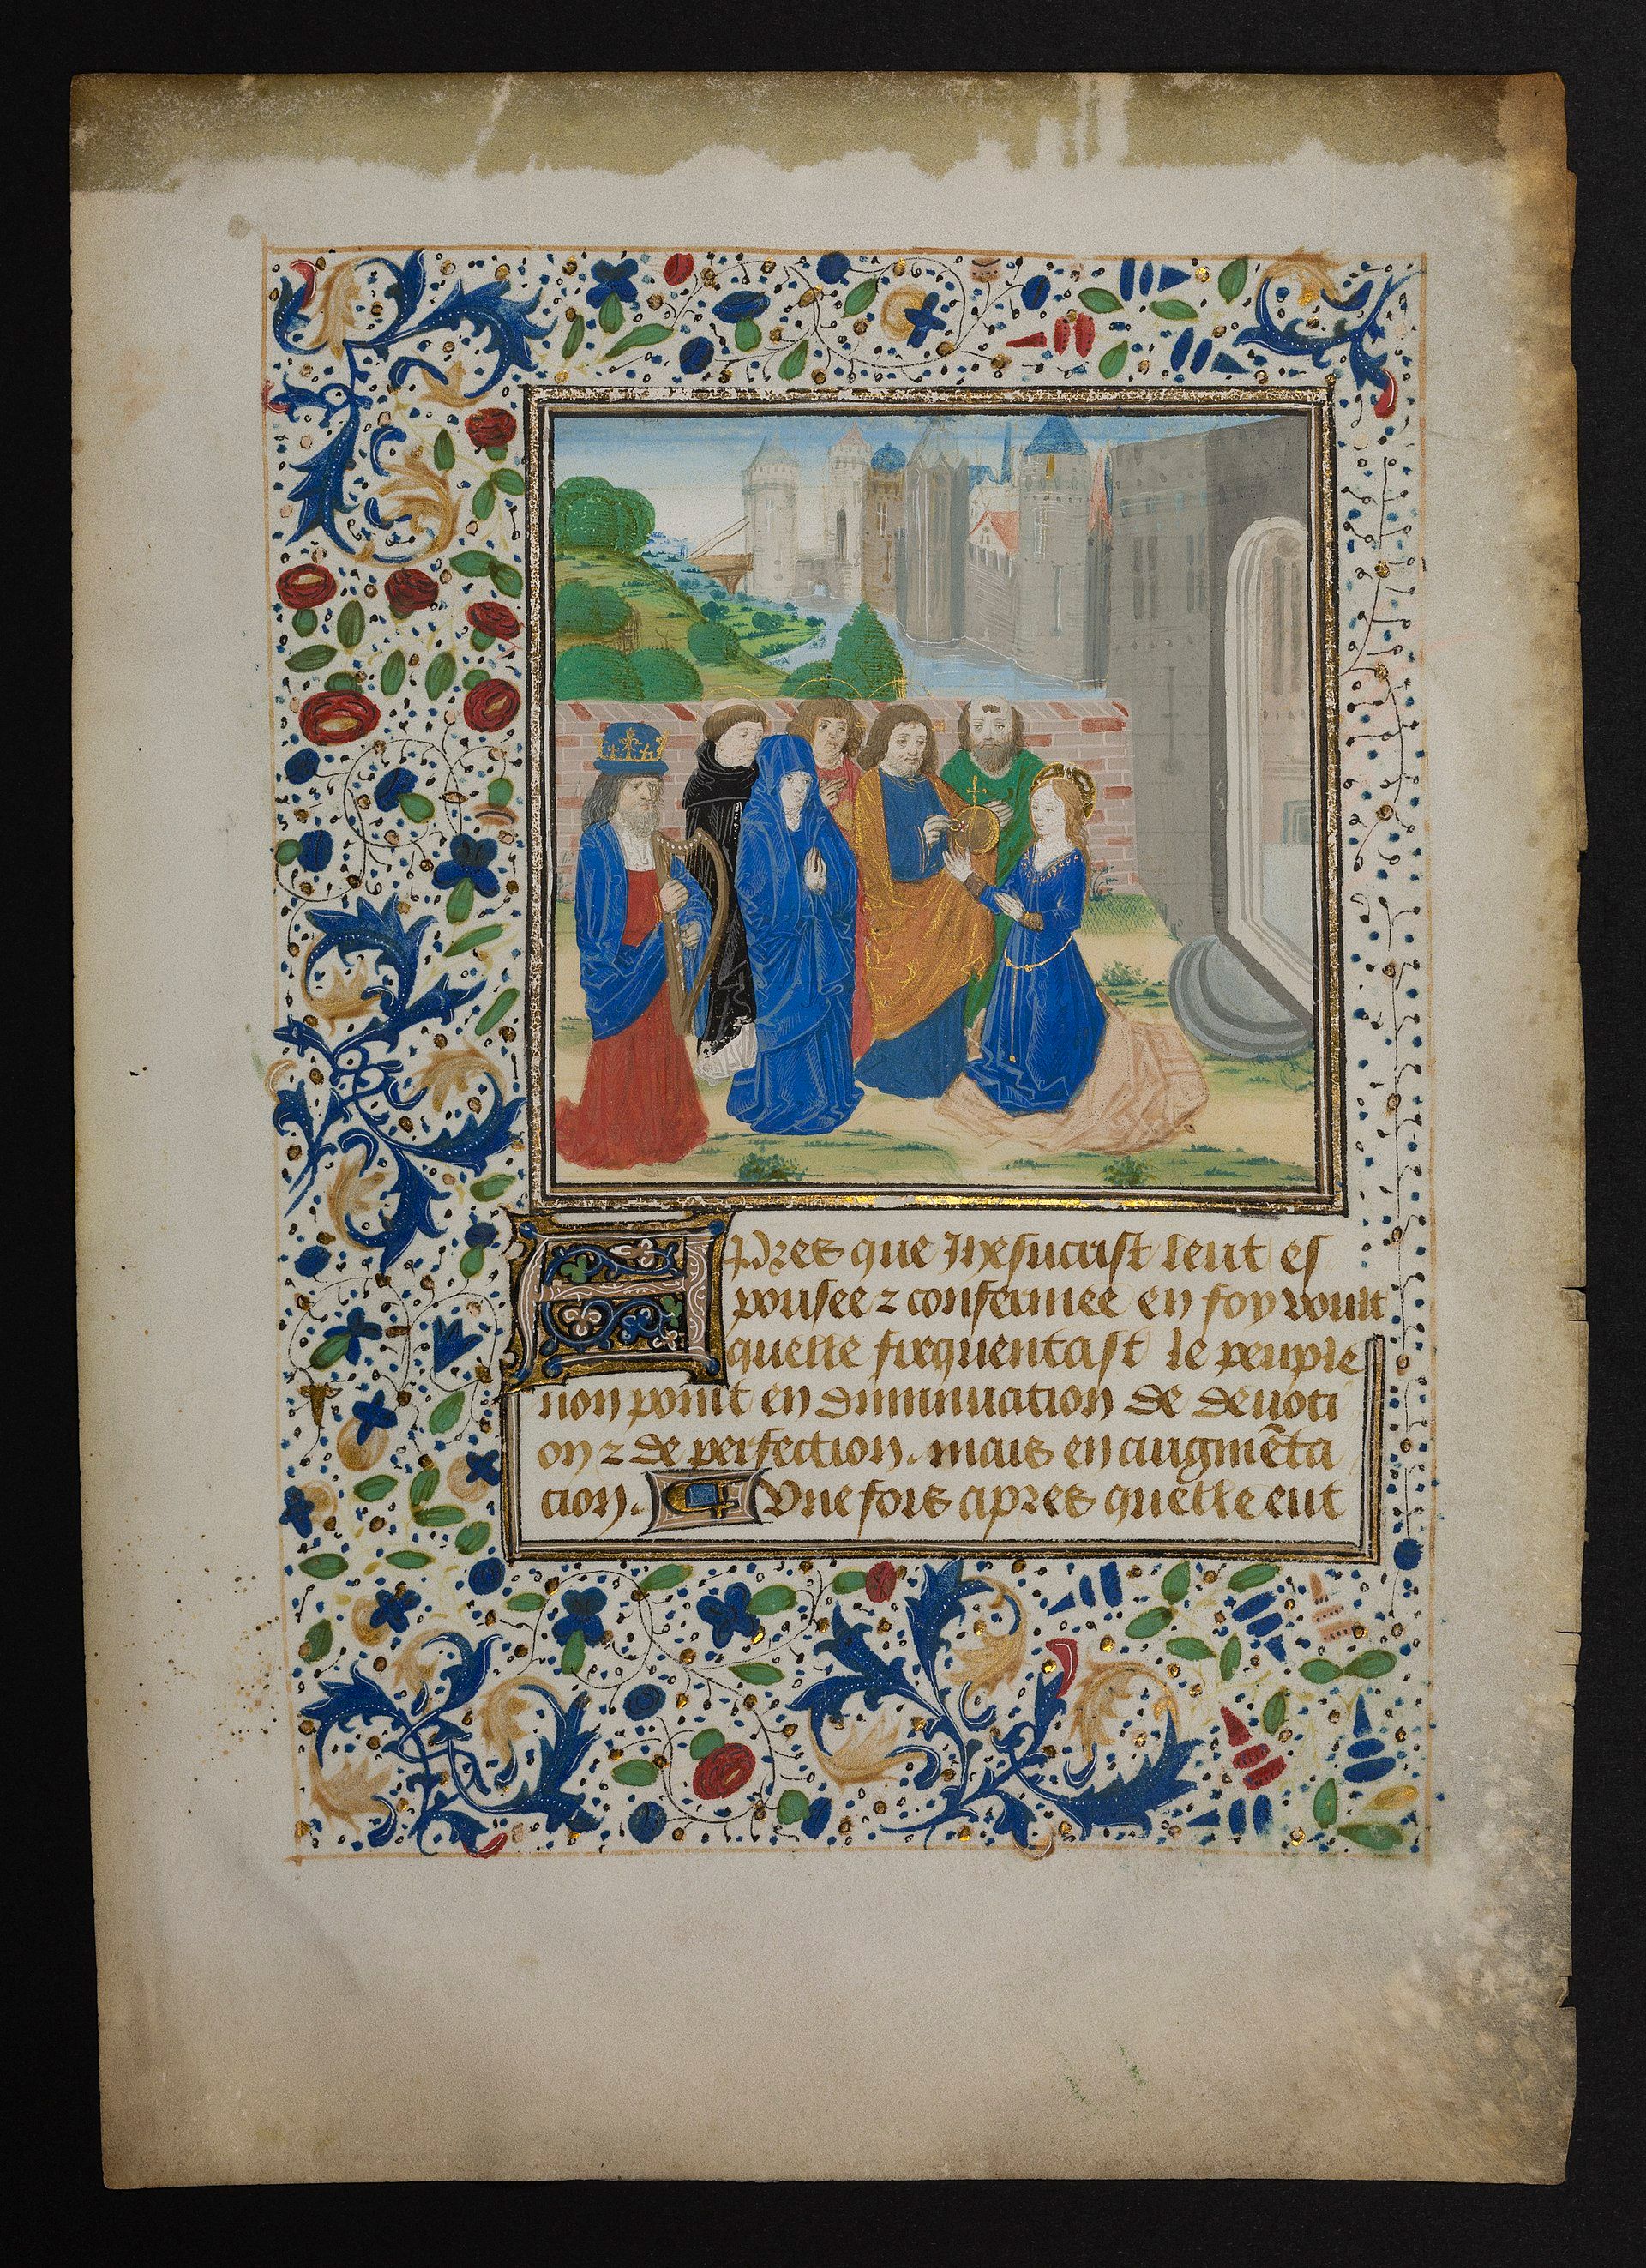 Apres que Jhesucrist leut es
pousee ⁊ confermee en foy voult
quelle frequentast le peuple
non point en diminuacion de deuoti
on ⁊ de perfection. mais en augmēta
cion. Vne fois apres quelle eut